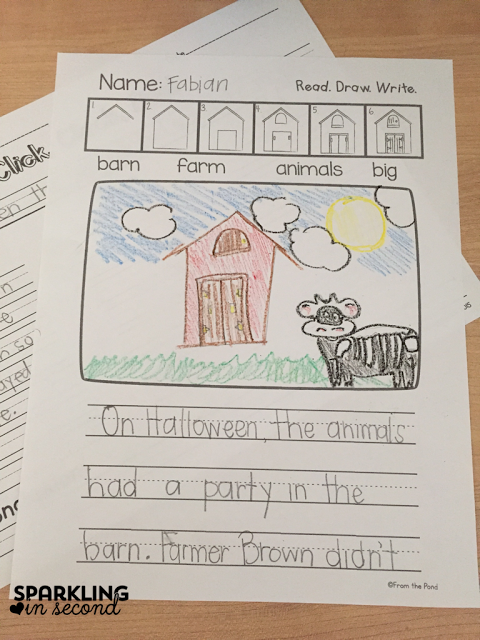 Name: Fabian
Read. Draw. Write.
1 2 3 4 5 6
barn farm animals big
On Halloween, the animals
had a party in the
barn. Farmer Brown didn't
©From the Pond
Click
SPARKLING
in second